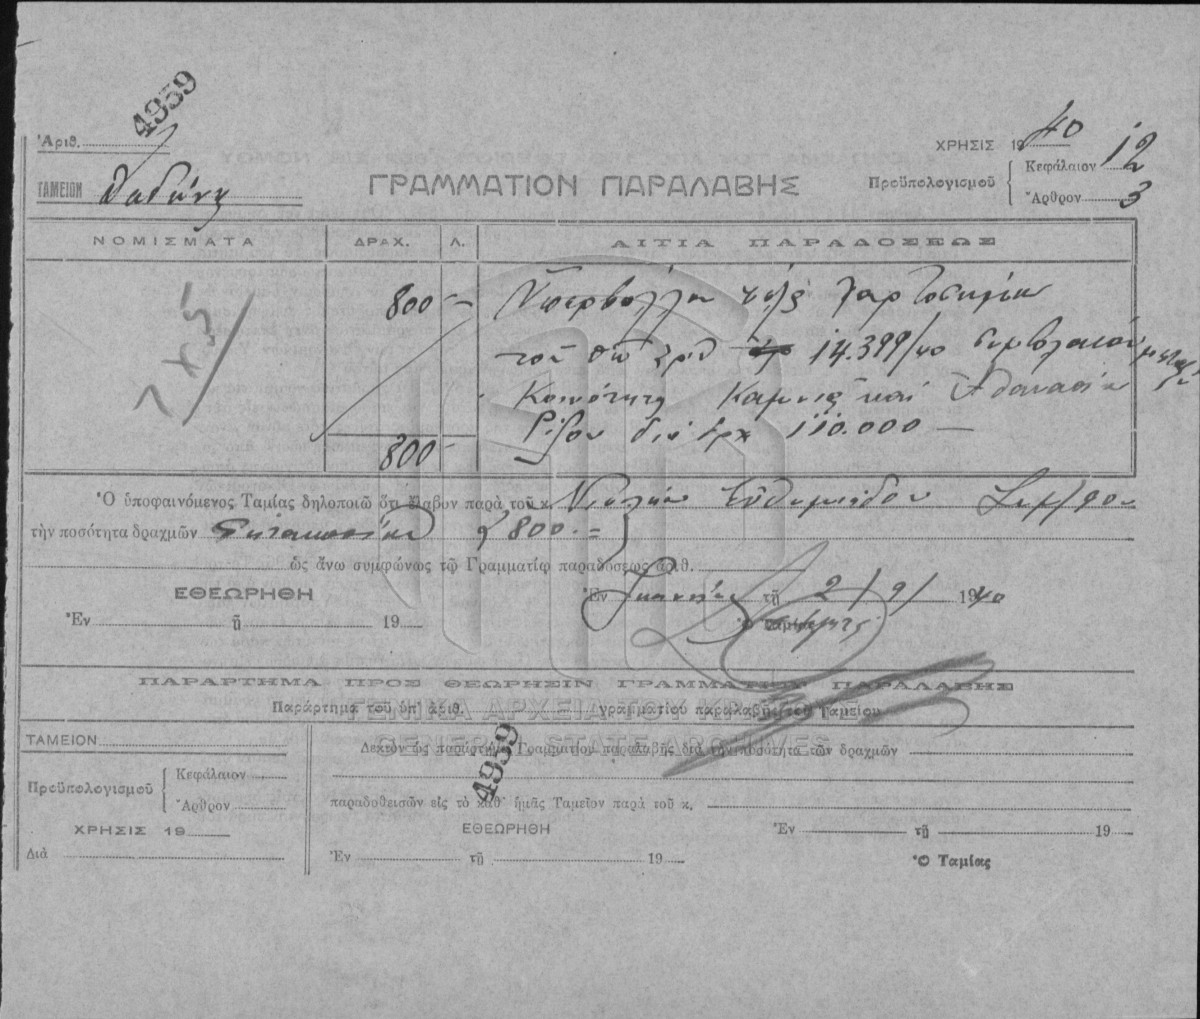 4959
Ἀριθ.
ΧΡΗΣΙΣ 1940
ΤΑΜΕΙΟΝ
ΓΡΑΜΜΑΤΙΟΝ ΠΑΡΑΛΑΒΗΣ
Προϋπολογισμοῦ { Κεφάλαιον 12
Ἄρθρον 3
ΝΟΜΙΣΜΑΤΑ ΔΡΑΧ. Λ. ΑΙΤΙΑ ΠΑΡΑΔΟΣΕΩΣ
800 -
τοῦ ὑπ' ἀριθ 14.399/40 συμβολαίου μεταξὺ
Κοινότητος καὶ Ἀθανασίου
Ρίζου διὰ δρχ 110.000 —
800 -
Ὁ ὑποφαινόμενος Ταμίας δηλοποιῶ ὅτι ἔλαβον παρὰ τοῦ κ.
τὴν ποσότητα δραχμῶν Ὀκτακοσίων { 800.= }
ὡς ἄνω συμφώνως τῷ Γραμματίῳ παραδόσεως ἀριθ.
ΕΘΕΩΡΗΘΗ
Ἐν τῇ 2/9/1940
Ἐν τῇ 19
Ὁ Ταμίας
ΠΑΡΑΡΤΗΜΑ ΠΡΟΣ ΘΕΩΡΗΣΙΝ ΓΡΑΜΜΑΤΙΟΥ ΠΑΡΑΛΑΒΗΣ
Παράρτημα τοῦ ὑπ' ἀριθ. γραμματίου παραλαβῆς τοῦ Ταμείου
ΓΕΝΙΚΑ ΑΡΧΕΙΑ ΤΟΥ ΚΡΑΤΟΥΣ
GENERAL STATE ARCHIVES
4959
ΤΑΜΕΙΟΝ
Δεκτὸν ὡς παράρτημα Γραμματίου παραλαβῆς διὰ τὴν ποσότητα τῶν δραχμῶν
Προϋπολογισμοῦ { Κεφάλαιον
Ἄρθρον
παραδοθεισῶν εἰς τὸ καθ' ἡμᾶς Ταμεῖον παρὰ τοῦ κ.
ΧΡΗΣΙΣ 19
ΕΘΕΩΡΗΘΗ
Ἐν τῇ 19
Διὰ
Ἐν τῇ 19
Ὁ Ταμίας